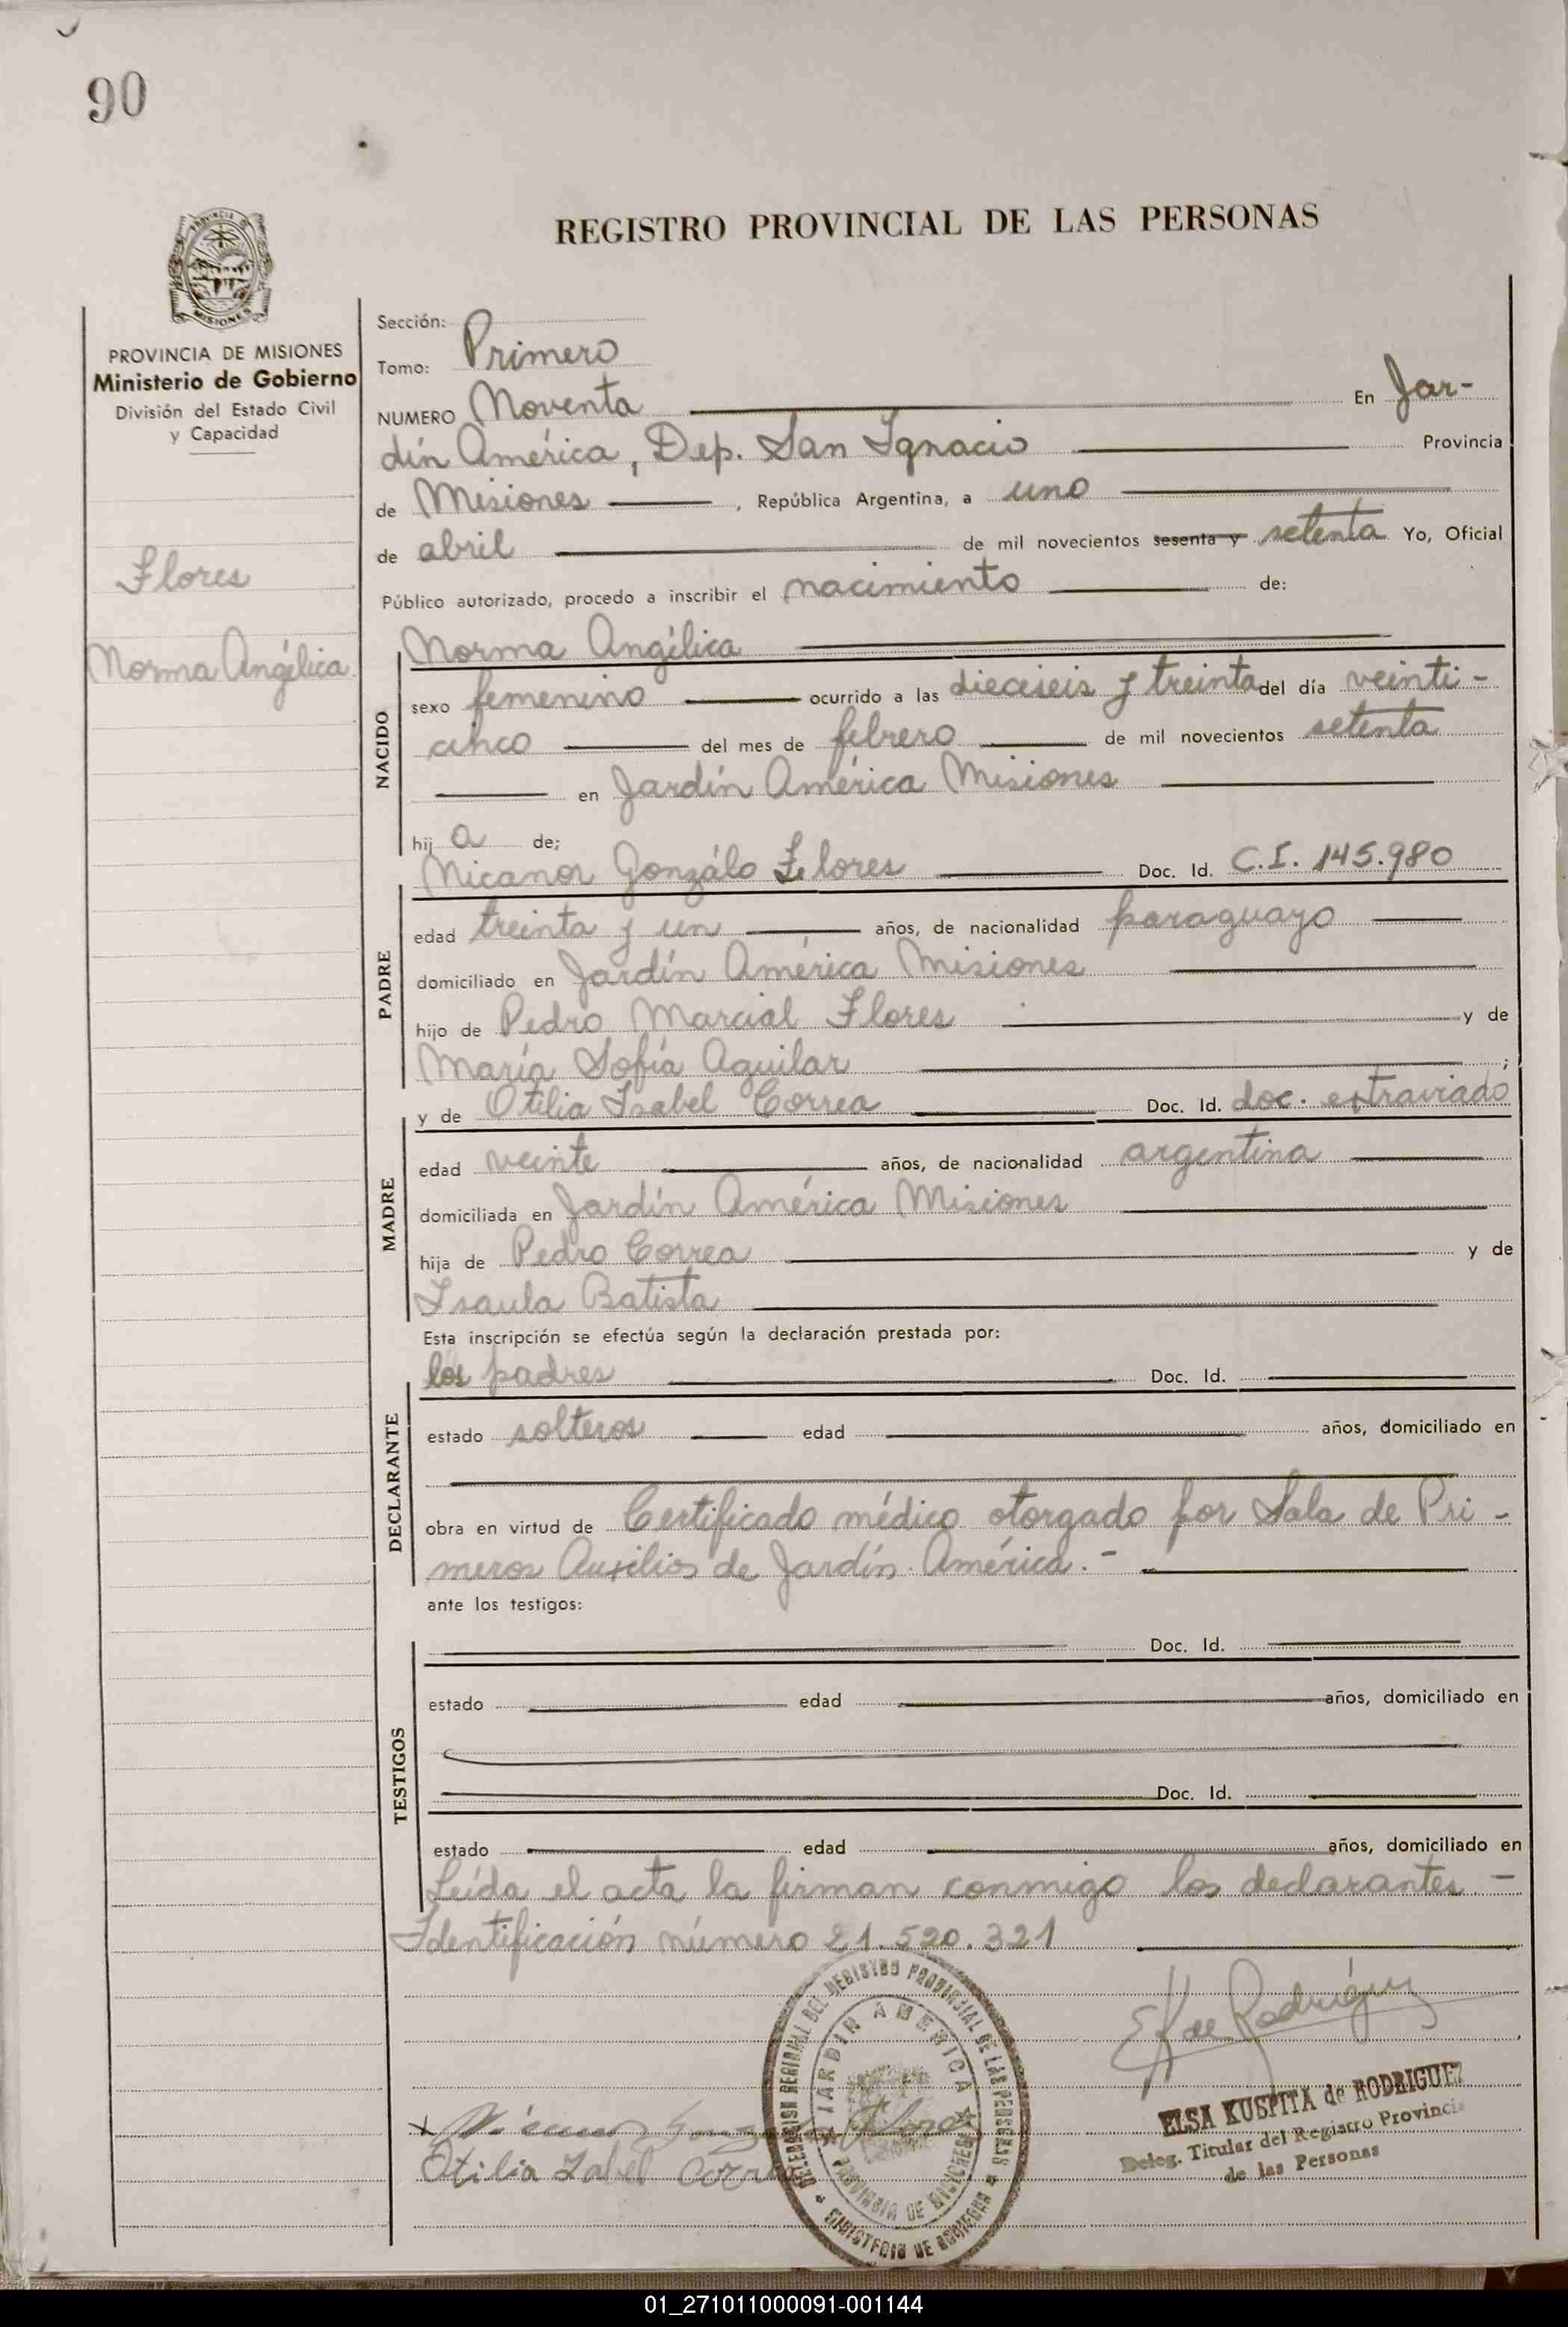 90
REGISTRO PROVINCIAL DE LAS PERSONAS
PROVINCIA DE MISIONES
Ministerio de Gobierno
División del Estado Civil
y Capacidad
Flores
Norma Angélica
Sección:
Tomo: Primero
NUMERO Noventa En Jar-
dín América, Dep. San Ignacio Provincia
de Misiones, República Argentina, a uno
de abril de mil novecientos sesenta y setenta Yo, Oficial
Público autorizado, procedo a inscribir el nacimiento de:
Norma Angélica
NACIDO
sexo femenino ocurrido a las dieciseis y treinta del día veinti-
cinco del mes de febrero de mil novecientos setenta
en Jardín América Misiones
hij a de;
Nicanor Gonzálo Flores Doc. Id. C.I. 145.980
PADRE
edad treinta y un años, de nacionalidad paraguayo
domiciliado en Jardín América Misiones
hijo de Pedro Marcial Flores y de
María Sofía Aguilar ;
y de Otilia Isabel Correa Doc. Id. doc. extraviado
MADRE
edad veinte años, de nacionalidad argentina
domiciliada en Jardín América Misiones
hija de Pedro Correa y de
Isaula Batista
Esta inscripción se efectúa según la declaración prestada por:
los padres Doc. Id.
DECLARANTE
estado solteros edad años, domiciliado en
obra en virtud de Certificado médico otorgado por Sala de Pri-
meros Auxilios de Jardín América.-
ante los testigos:
Doc. Id.
TESTIGOS
estado edad años, domiciliado en
Doc. Id.
estado edad años, domiciliado en
Leída el acta la firman conmigo los declarantes.-
Identificación número 21.520.321
DELEGACION REGIONAL DEL REGISTRO PROVINCIAL DE LAS PERSONAS
JARDIN AMERICA
PROVINCIA DE MISIONES
MINISTERIO DE GOBIERNO
EK de Rodríguez
ELSA KUSPITA de RODRIGUEZ
Deleg. Titular del Registro Provincia
de las Personas
x Nicanor Gonzalo Flores
Otilia Isabel Correa
01_271011000091-001144